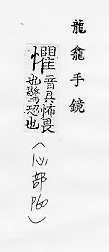 龍龕手鏡
懼音具怖畏
也驚恐也
(心部 P60)